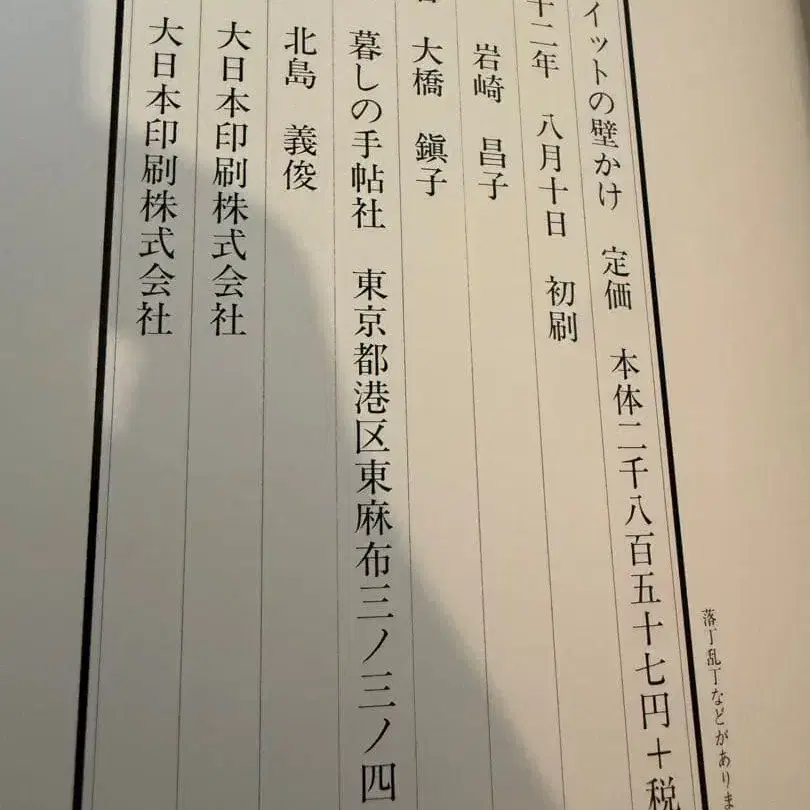 落丁乱丁などがありま
イットの壁かけ 定価 本体二千八百五十七円+税
十二年 八月十日 初刷
岩崎 昌子
大橋 鎭子
暮しの手帖社 東京都港区東麻布三ノ三ノ四
北島 義俊
大日本印刷株式会社
大日本印刷株式会社